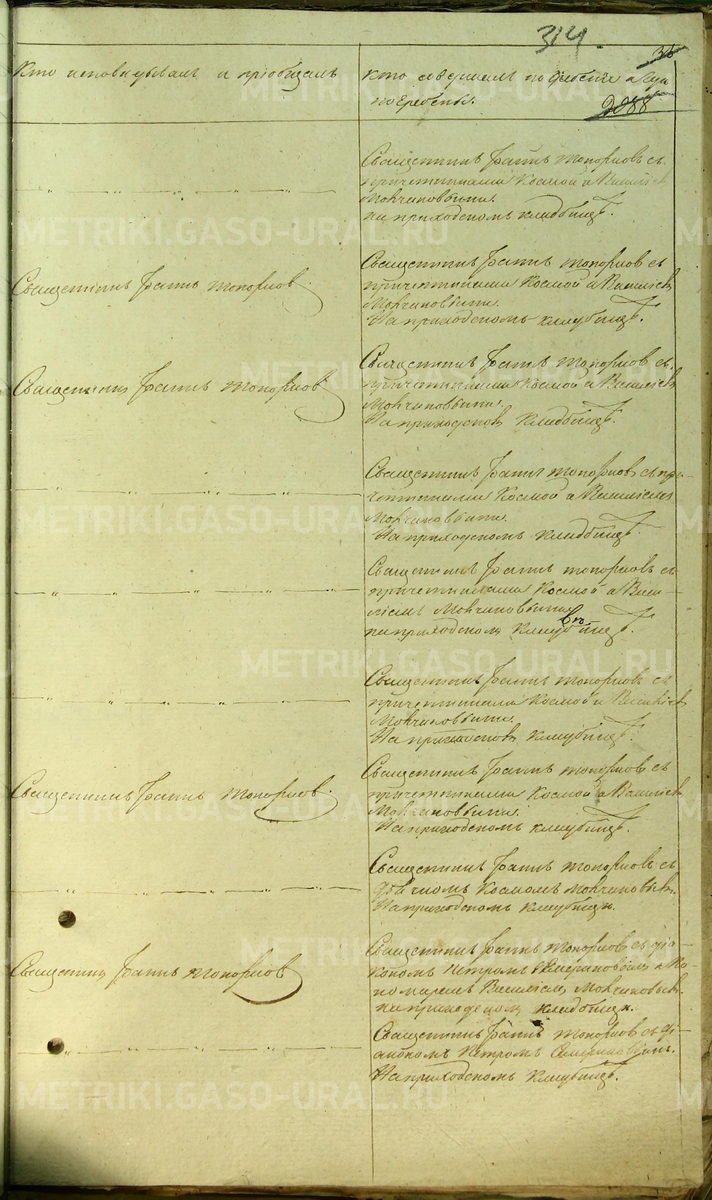 314.
Кто исповедывалъ и приобщалъ
Кто совершалъ погребение и гдѣ
погребены.
2088
Священникъ Іоаннъ Топорковъ съ
причетниками Космой и Василіемъ
Молчановыми.
На приходскомъ кладбищѣ.
Священникъ Іоаннъ Топорковъ
Священникъ Іоаннъ Топорковъ съ
причетниками Космой и Василіемъ
Молчановыми.
На приходскомъ кладбищѣ.
Священникъ Іоаннъ Топорковъ
Священникъ Іоаннъ Топорковъ съ
причетниками Космой и Василіемъ
Молчановыми.
На приходскомъ кладбищѣ.
Священникъ Іоаннъ Топорковъ съ при-
четниками Космой и Василіемъ
Молчановыми.
На приходскомъ кладбищѣ.
Священникъ Іоаннъ Топорковъ съ
причетниками Космой и Васи-
ліемъ Молчановыми
на приходскомъ кладбищѣ.
Священникъ Іоаннъ Топорковъ съ
причетниками Космой и Василіемъ
Молчановыми.
На приходскомъ кладбищѣ.
Священникъ Іоаннъ Топорковъ
Священникъ Іоаннъ Топорковъ съ
причетниками Космой и Василіемъ
Молчановыми.
На приходскомъ кладбищѣ.
Священникъ Іоаннъ Топорковъ съ
дьячкомъ Космомъ Молчановымъ.
На приходскомъ кладбищѣ.
Священникъ Іоаннъ Топорковъ
Священникъ Іоаннъ Топорковъ съ діа-
кономъ Петромъ и По-
номаремъ Василіемъ Молчановымъ.
на приходскомъ кладбищѣ.
Священникъ Іоаннъ Топорковъ съ ді-
акономъ Петромъ
На приходскомъ кладбищѣ.
METRIKI.GASO-URAL.RU